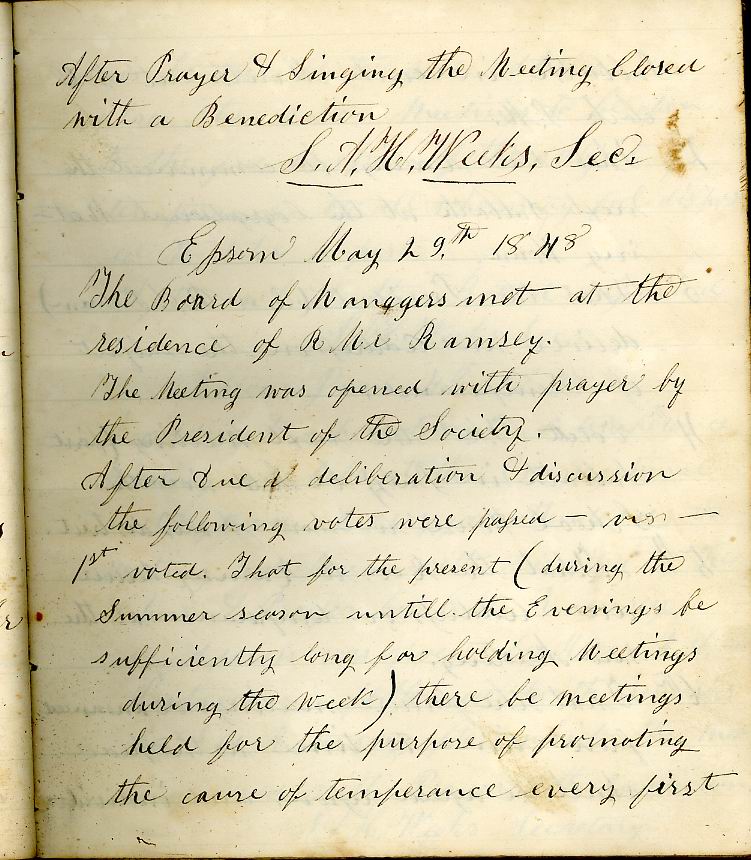 After Prayer & Singing the Meeting Closed
with a Benediction
S. A. H. Weeks, Sec.
Epsom May 29.th 1848
The Board of Managers met at the
residence of R Mc Ramsey.
The Meeting was opened with prayer by
the President of the Society.
After Due d deliberation & discussion
the following votes were passed — vis —
1st voted. That for the present (during the
Summer season untill the Evenings be
sufficiently long for holding Meetings
during the week) there be meetings
held for the purpose of promoting
the cause of temperance every first